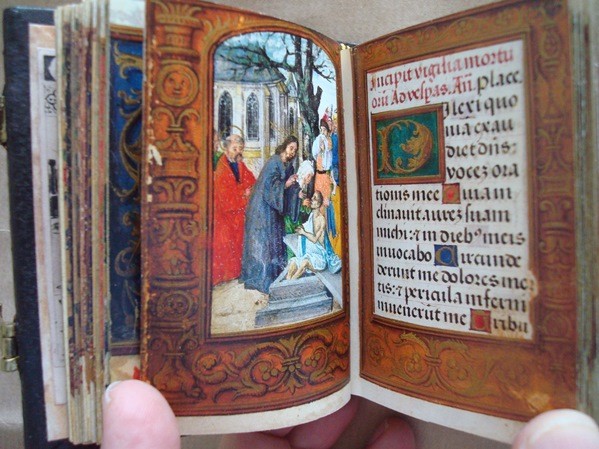 Incipit vigilia mortu
orū Ad vesp̄as. Añ. Place.
Dilexi quo
niā exau
diet dn̄s:
vocez ora
tionis mee Quia in
clinauit aurez suam
michi: ⁊ in diebꝰ meis
inuocabo Circunde
derunt me dolores mor
tis: ⁊ pericula inferni
inuenerunt me Tribu